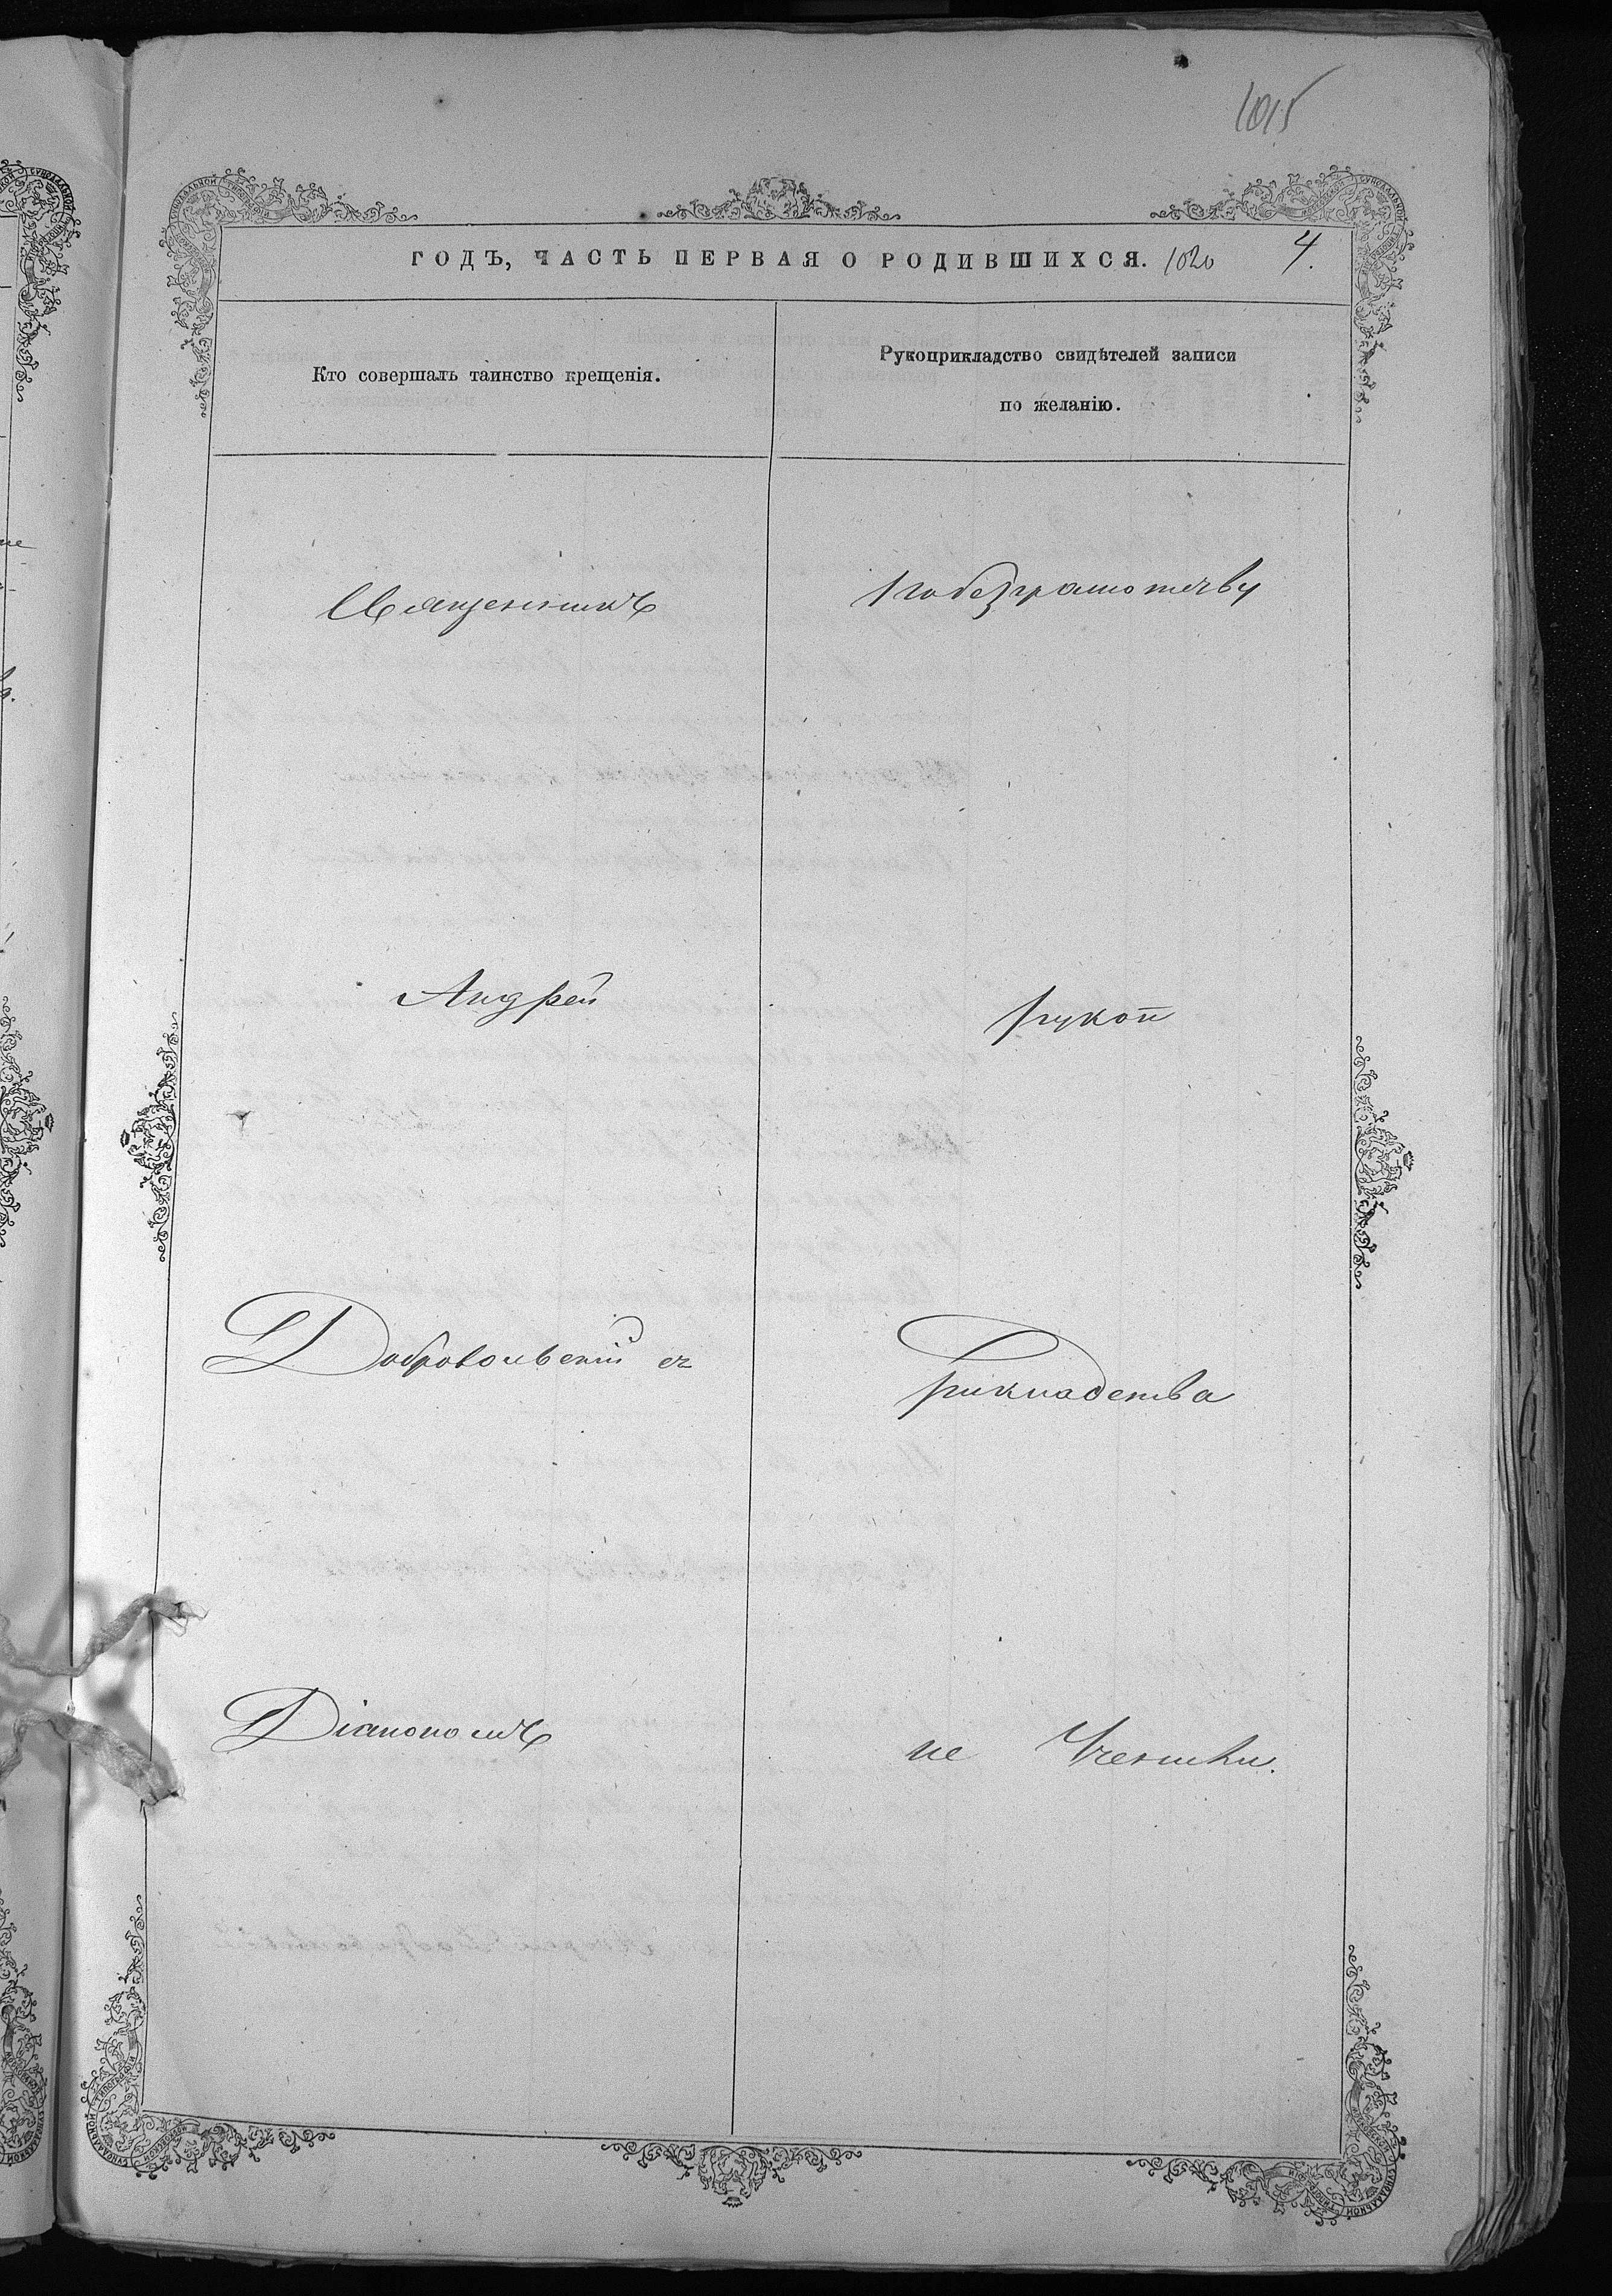 1015
ГОДЪ, ЧАСТЬ ПЕРВАЯ О РОДИВШИХСЯ. 1020 4.
Кто совершалъ таинство крещенія.
Рукоприкладство свидѣтелей записи
по желанію.
Священникъ
По безграмотству
Андрей
рукоп
Добровольскій съ
рикладства
Діакономъ
не Учинили.